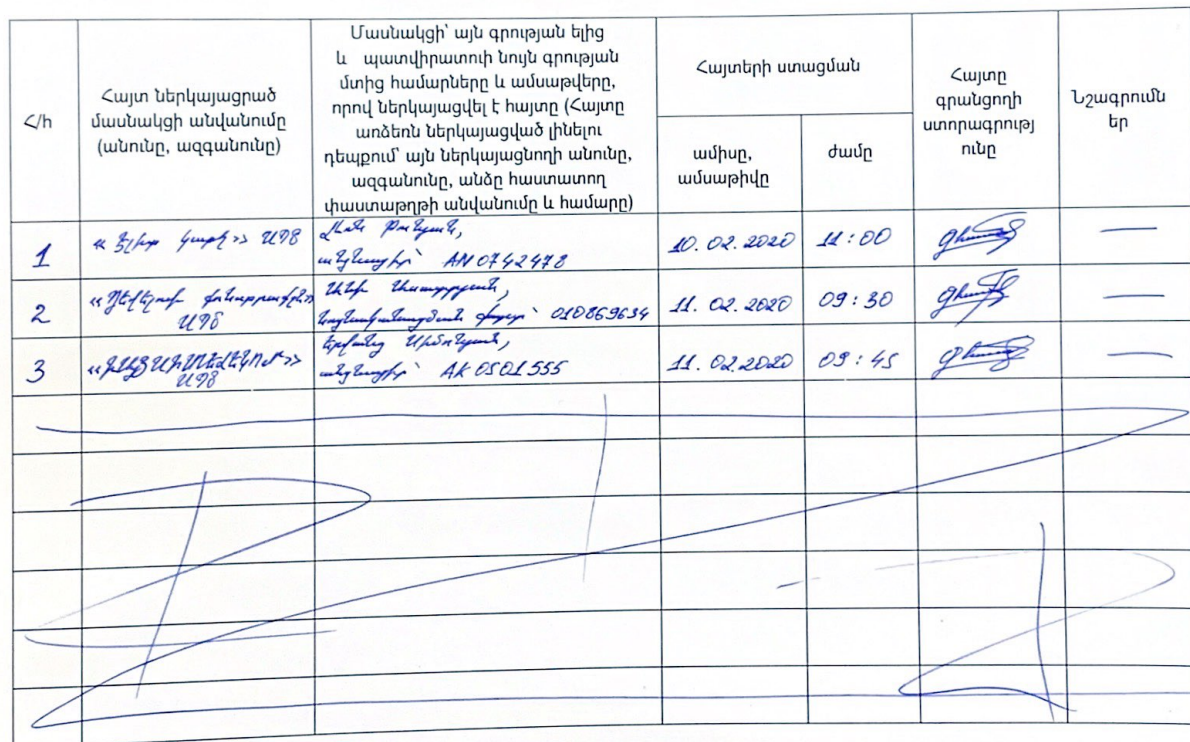 Հ/հ
Հայտ ներկայացրած
մասնակցի անվանումը
(անունը, ազգանունը)
Մասնակցի՝ այն գրության ելից
և պատվիրատուի նույն գրության
մտից համարները և ամսաթվերը,
որով ներկայացվել է հայտը (Հայտը
առձեռն ներկայացված լինելու
դեպքում՝ այն ներկայացնողի անունը,
ազգանունը, անձը հաստատող
փաստաթղթի անվանումը և համարը)
Հայտերի ստացման
ամիսը,
ամսաթիվը
ժամը
Հայտը
գրանցողի
ստորագրությ
ունը
Նշագրումն
եր
1
ՍՊԸ
անձնագիր՝ AN 0742478
10.02.2020
11:00
2
ՍՊԸ
Անի
նույնականացման քարտ՝ 010869634
11.02.2020
09:30
3
ՍՊԸ
Երվանդ Սիմոնյան,
անձնագիր՝ AK 0501555
11.02.2020
09:45